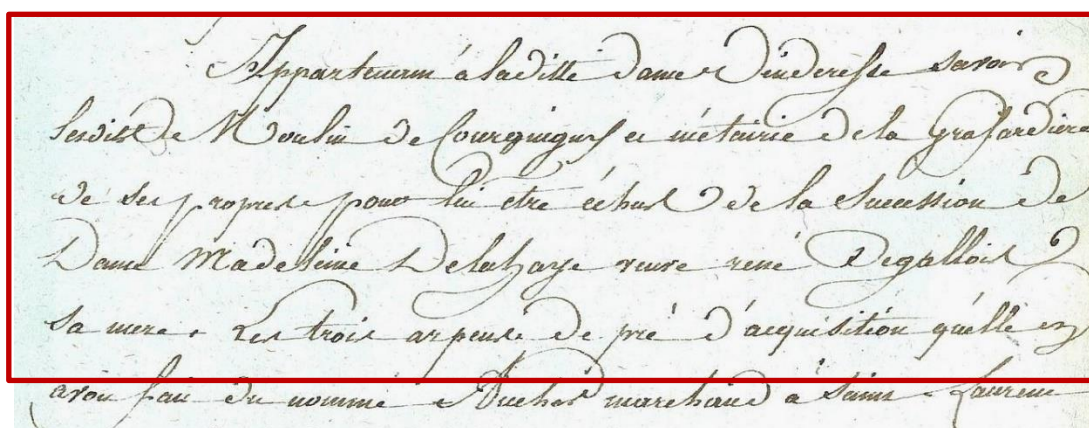 Appartenant à laditte dame Venderesse savoir
lesdits Moulin de Courguignest et métairie de la Grasardiere
de ses propres pour lui etre échus de la succession de
Dame Madeleine Delahaye veuve rené Degallois
sa mere. Les trois arpens de pré d'acquisition qu'elle en
avoit fait du nommé marchand à Saint Laurent